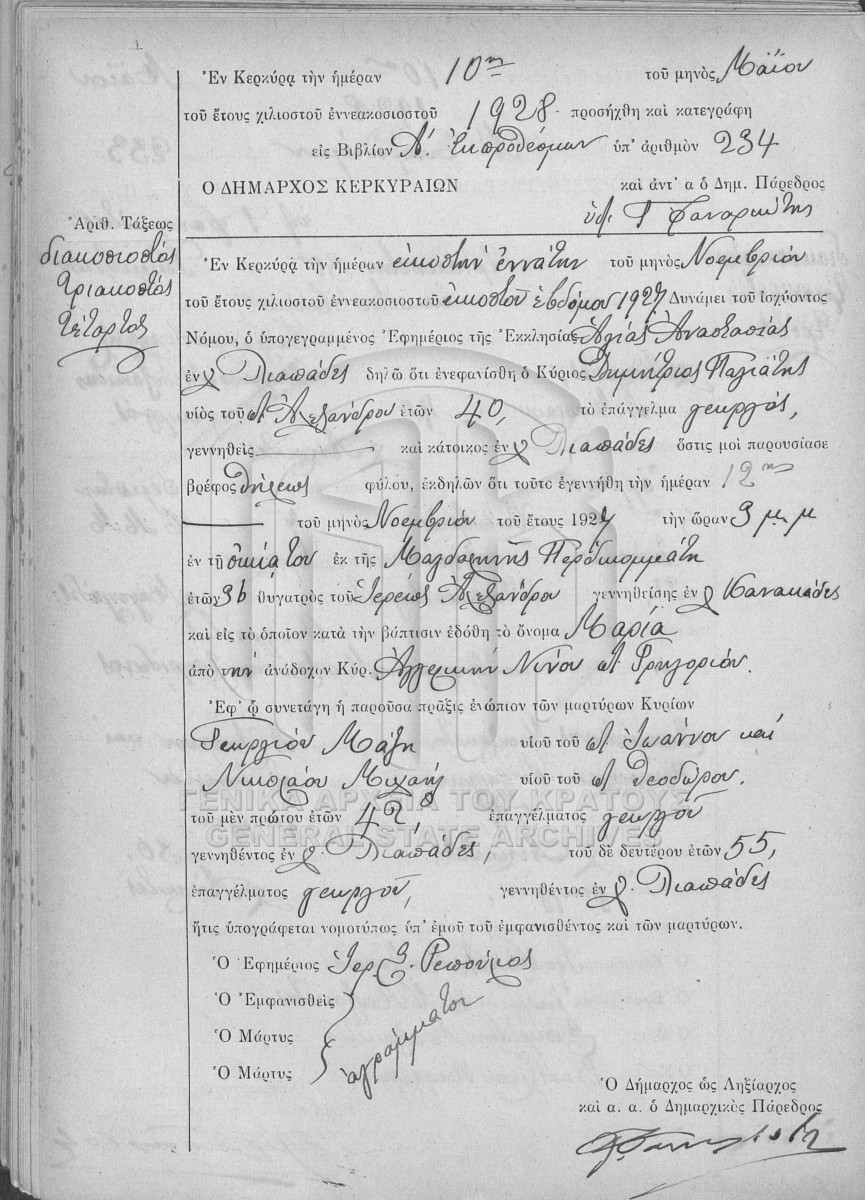 Ἐν Κερκύρᾳ τὴν ἡμέραν 10ην τοῦ μηνὸς Μαΐου
τοῦ ἔτους χιλιοστοῦ ἐννεακοσιοστοῦ 1928 προσήχθη καὶ κατεγράφη
εἰς Βιβλίον Α΄. Ἐκπροθέσμων ὑπ' ἀριθμὸν 234
Ο ΔΗΜΑΡΧΟΣ ΚΕΡΚΥΡΑΙΩΝ καὶ ἀντ' α ὁ Δημ. Πάρεδρος
Ἀριθ. Τάξεως
διακοσιοστός
τριακοστός
τέταρτος
Ἐν Κερκύρᾳ τὴν ἡμέραν εἰκοστὴν ἐννάτην τοῦ μηνὸς Νοεμβρίου
τοῦ ἔτους χιλιοστοῦ ἐννεακοσιοστοῦ εἰκοστοῦ ἑβδόμου 1927 Δυνάμει τοῦ ἰσχύοντος
Νόμου, ὁ ὑπογεγραμμένος Ἐφημέριος τῆς Ἐκκλησίας Ἁγίας Ἀναστασίας
ἐν χ Λιαπάδες δηλῶ ὅτι ἐνεφανίσθη ὁ Κύριος Δημήτριος Παγιάτης
υἱὸς τοῦ Ἀλεξάνδρου ἐτῶν 40, τὸ ἐπάγγελμα γεωργός,
γεννηθεὶς καὶ κάτοικος ἐν χ Λιαπάδες ὅστις μοὶ παρουσίασε
βρέφος θήλεως φύλου, ἐκδηλῶν ὅτι τοῦτο ἐγεννήθη τὴν ἡμέραν 12ην
τοῦ μηνὸς Νοεμβρίου τοῦ ἔτους 1927 τὴν ὥραν 3 μ.μ
ἐν τῇ οἰκίᾳ του ἐκ τῆς Μαγδαληνῆς Περδικομμάτη
ἐτῶν 36 θυγατρὸς τοῦ Ἱερέως Ἀλεξάνδρου γεννηθείσης ἐν χ Κανακάδες
καὶ εἰς τὸ ὁποῖον κατὰ τὴν βάπτισιν ἐδόθη τὸ ὄνομα Μαρία
ἀπὸ τὴν ἀνάδοχον Κύρ. Ἀγγελικὴν Νίνου Γρηγορίου.
Ἐφ' ᾧ συνετάγη ἡ παροῦσα πρᾶξις ἐνώπιον τῶν μαρτύρων Κυρίων
Γεωργίου Μάζη υἱοῦ τοῦ Ἰωάννου καί
Νικολάου Μιχαήλ υἱοῦ τοῦ Θεοδώρου.
ΓΕΝΙΚΑ ΑΡΧΕΙΑ ΤΟΥ ΚΡΑΤΟΥΣ
τοῦ μὲν πρώτου ἐτῶν 42, ἐπαγγέλματος γεωργοῦ
GENERAL STATE ARCHIVES
γεννηθέντος ἐν χ. Λιαπάδες, τοῦ δὲ δευτέρου ἐτῶν 55,
ἐπαγγέλματος γεωργοῦ, γεννηθέντος ἐν χ. Λιαπάδες
ἥτις ὑπογράφεται νομοτύπως ὑπ' ἐμοῦ τοῦ ἐμφανισθέντος καὶ τῶν μαρτύρων.
Ὁ Ἐφημέριος Ἱερ.
Ὁ Ἐμφανισθεὶς
ἀγράμματοι
Ὁ Μάρτυς
Ὁ Μάρτυς
Ὁ Δήμαρχος ὡς Ληξίαρχος
καὶ α. α. ὁ Δημαρχικὸς Πάρεδρος